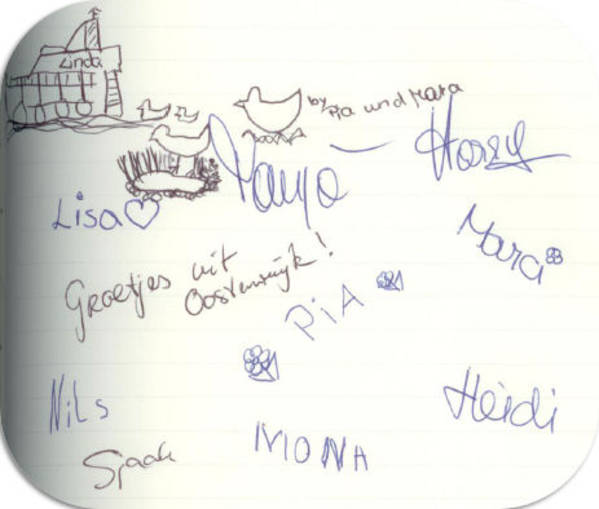 Linda
by Pia und Mara
Tanja
Horzy
Lisa
Mara
Groetjes uit
Oosterwijk!
PiA
NiLs
Heidi
Sjaak
MONA